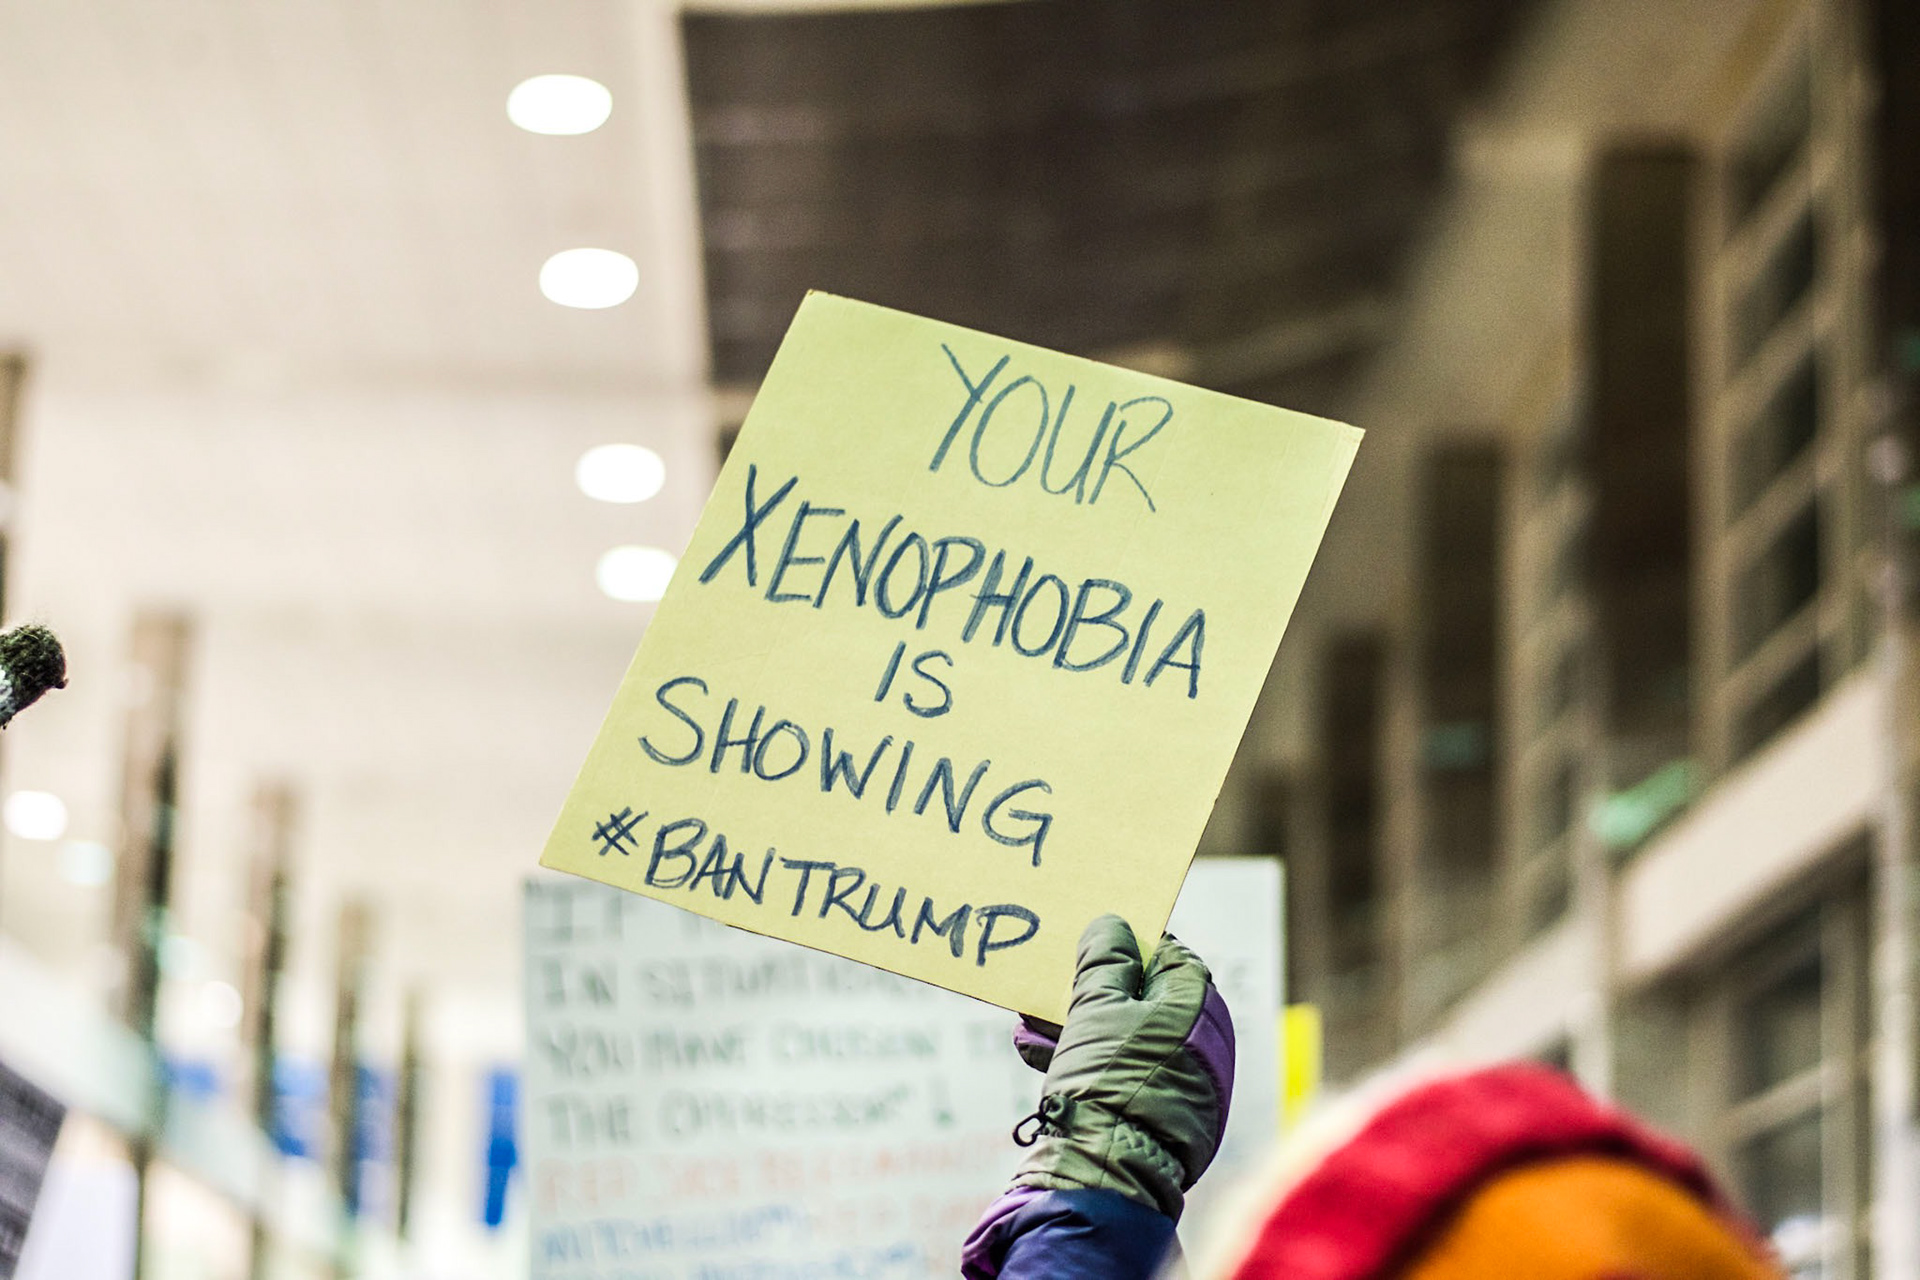 YOUR
XENOPHOBIA
IS
SHOWING
#BANTRUMP
IN SITUATIONS
YOU HAVE CHOSEN
THE OPPRESSOR"